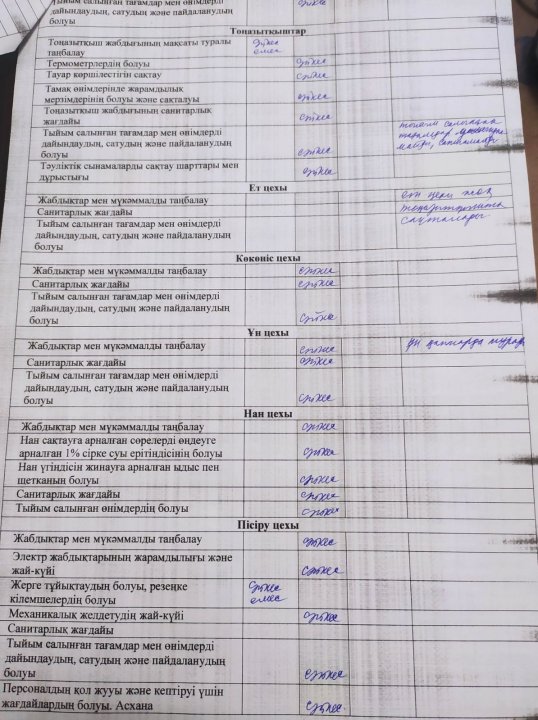 Тыйым салынған тағамдар мен өнімдерді
дайындаудың, сатудың және пайдаланудың
болуы
сәйкес
Тоңазытқыштар
Тоңазытқыш жабдығының мақсаты туралы
таңбалау
сәйкес
емес
Термометрлердің болуы
сәйкес
Тауар көршілестігін сақтау
сәйкес
Тамақ өнімдерінде жарамдылық
мерзімдерінің болуы және сақталуы
сәйкес
Тоңазытқыш жабдығының санитарлық
жағдайы
сәйкес
Тыйым салынған тағамдар мен өнімдерді
дайындаудың, сатудың және пайдаланудың
болуы
сәйкес
тыйым салынған
тағамдар
сатылмайды
Тәуліктік сынамаларды сақтау шарттары мен
дұрыстығы
сәйкес
Ет цехы
Жабдықтар мен мүкәммалды таңбалау
ет цехы жоқ
Санитарлық жағдайы
тоңазытқышта
Тыйым салынған тағамдар мен өнімдерді
сақталады
дайындаудың, сатудың және пайдаланудың
болуы
Көкөніс цехы
Жабдықтар мен мүкәммалды таңбалау
сәйкес
Санитарлық жағдайы
сәйкес
Тыйым салынған тағамдар мен өнімдерді
дайындаудың, сатудың және пайдаланудың
болуы
сәйкес
Ұн цехы
Жабдықтар мен мүкәммалды таңбалау
сәйкес
ұн қаптарда тұрад
Санитарлық жағдайы
сәйкес
Тыйым салынған тағамдар мен өнімдерді
дайындаудың, сатудың және пайдаланудың
болуы
сәйкес
Нан цехы
Жабдықтар мен мүкәммалды таңбалау
сәйкес
Нан сақтауға арналған сөрелерді өңдеуге
арналған 1% сірке суы ерітіндісінің болуы
сәйкес
Нан үгіндісін жинауға арналған ыдыс пен
щетканың болуы
сәйкес
Санитарлық жағдайы
сәйкес
Тыйым салынған өнімдердің болуы
сәйкес
Пісіру цехы
Жабдықтар мен мүкәммалды таңбалау
сәйкес
Электр жабдықтарының жарамдылығы және
жай-күйі
сәйкес
Жерге тұйықтаудың болуы, резеңке
кілемшелердің болуы
сәйкес
емес
Механикалық желдетудің жай-күйі
сәйкес
Санитарлық жағдайы
Тыйым салынған тағамдар мен өнімдерді
дайындаудың, сатудың және пайдаланудың
болуы
сәйкес
Персоналдың қол жууы және кептіруі үшін
жағдайлардың болуы. Асхана
сәйкес